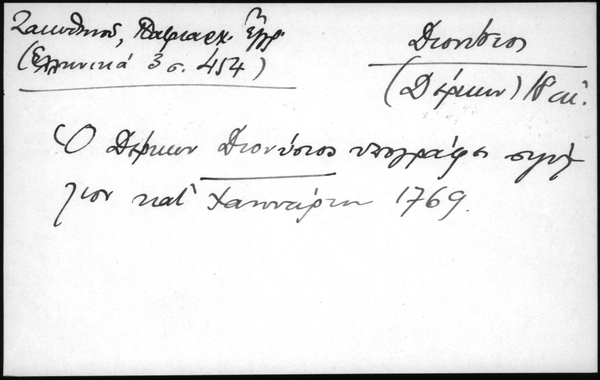 Ζακυθηνοῦ, Πατριαρχ. Ἔγγρ.
(Ἑλληνικά 3 σ. 454)
Διονύσιος
(Δέρκων) 18 αἰ.
Ὁ Δέρκων Διονύσιος ὑπογράφει σιγίλ
λιον κατ' Ἰαννουάριον 1769.